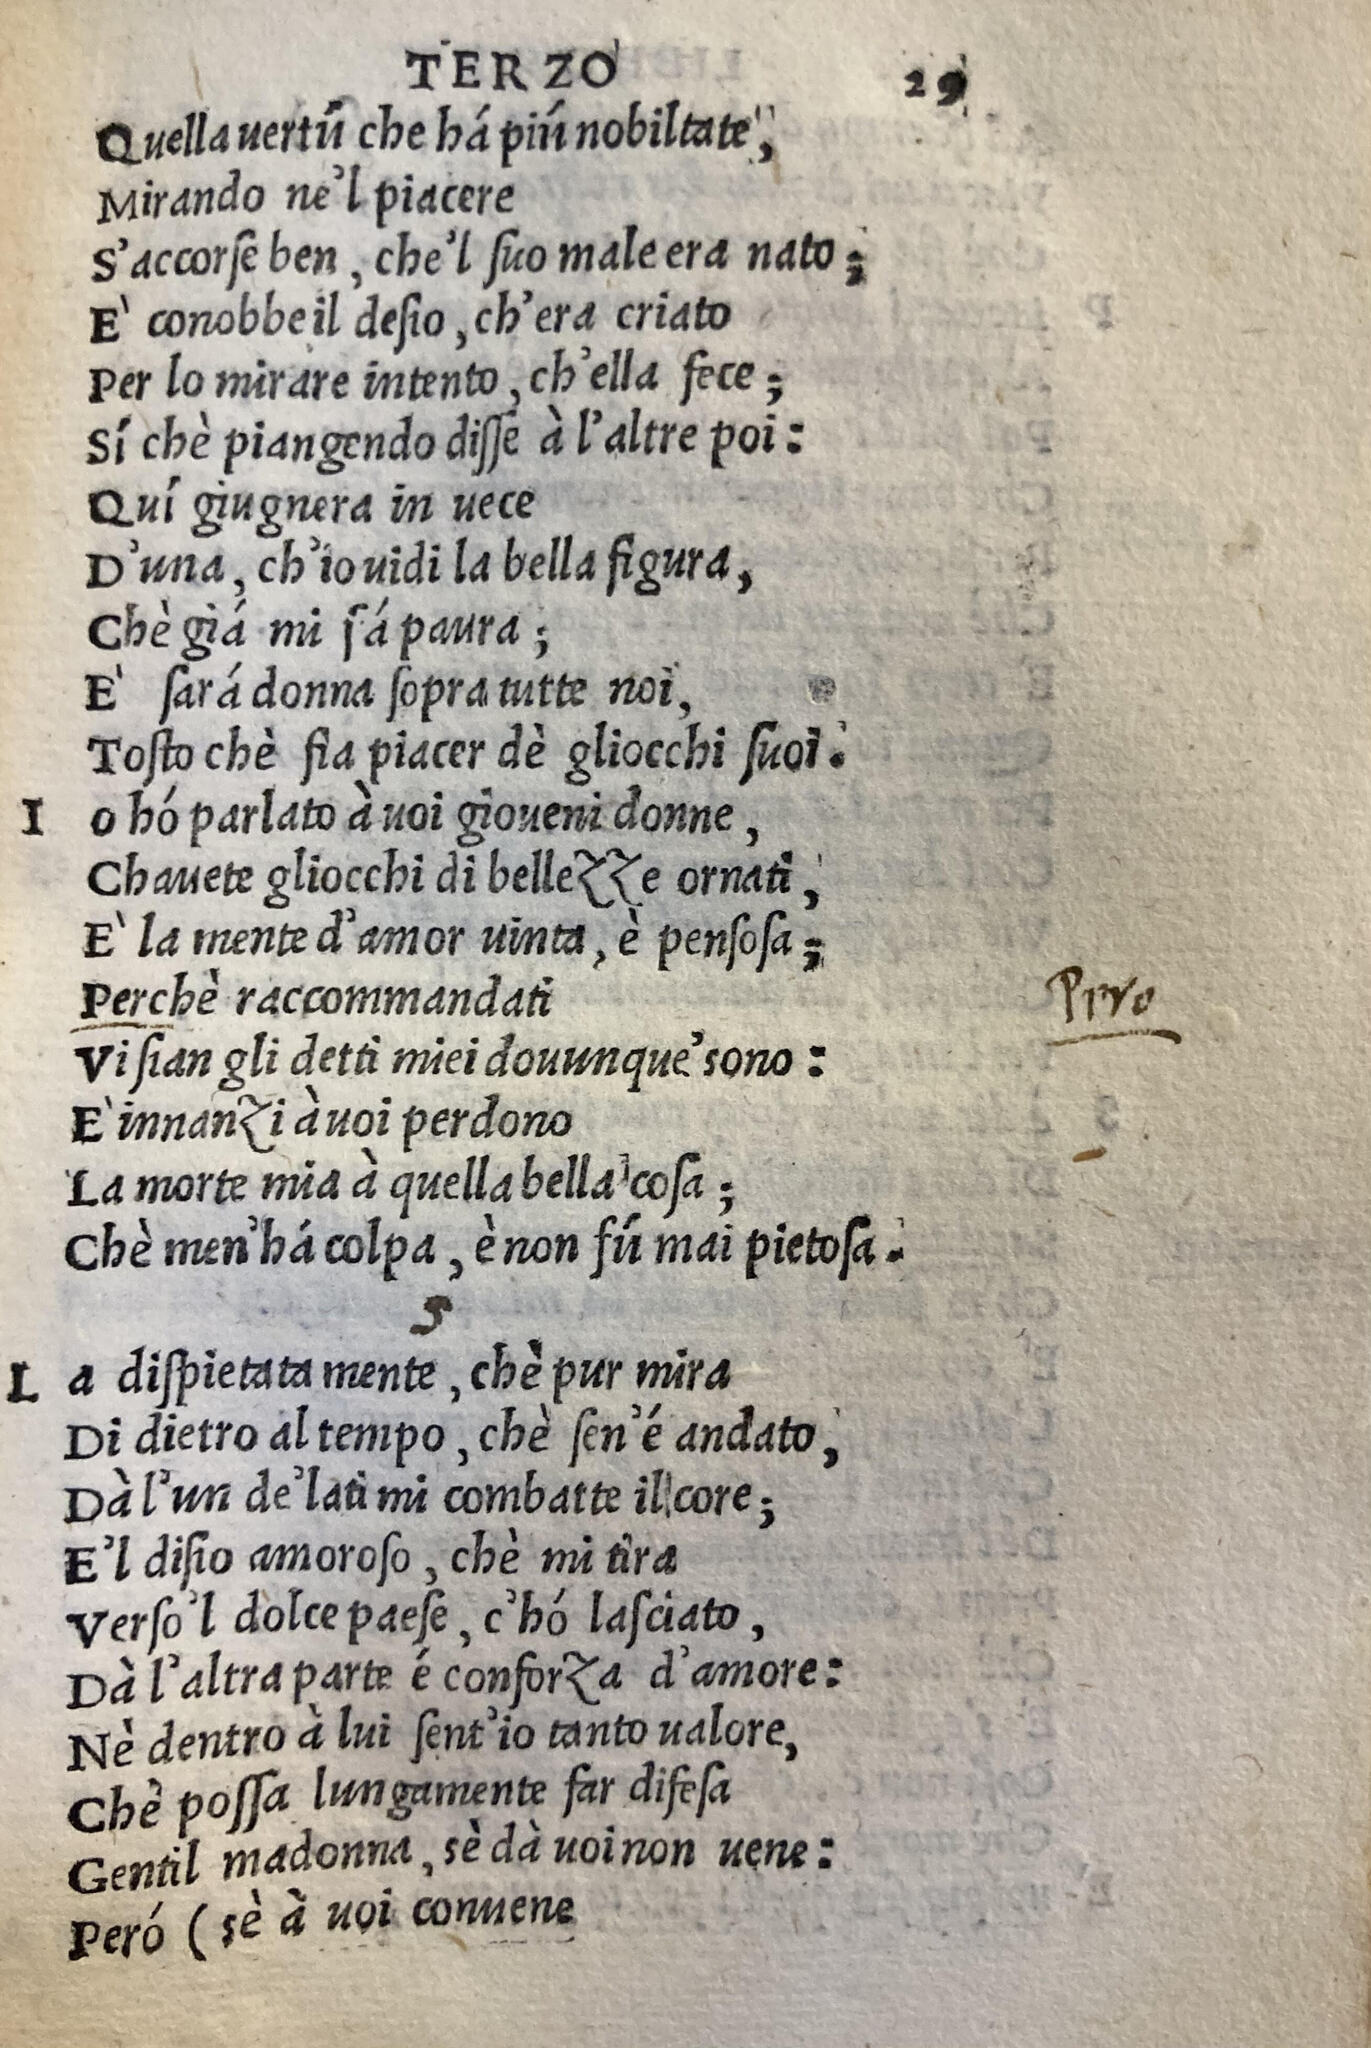 TERZO 29
Quella uertú che há piú nobiltate,
Mirando ne'l piacere
S'accorſe ben, che'l ſuo male era nato;
E' conobbe il deſio, ch'era criato
Per lo mirare intento, ch'ella fece;
Sí chè piangendo diſſe à l'altre poi:
Quí giugnera in uece
D'una, ch'io uidi la bella figura,
Chè giá mi fá paura;
E' ſará donna ſopra tutte noi,
Toſto chè fia piacer dè gliocchi ſuoi.
Io hó parlato à uoi gioueni donne,
Chauete gliocchi di bellezze ornati,
E' la mente d'amor uinta, è penſoſa;
Perchè raccommandati
Vi ſian gli detti miei douunque'sono:
E' innanzi à uoi perdono
La morte mia à quella bella coſa;
Chè men'há colpa, è non fú mai pietoſa.
5
La diſpietata mente, chè pur mira
Di dietro al tempo, chè ſen'é andato,
Dà l'un de'lati mi combatte il core;
E'l diſio amoroſo, chè mi tira
Verſo'l dolce paeſe, c'hó laſciato,
Dà l'altra parte é con forza d'amore:
Nè dentro à lui ſent'io tanto ualore,
Chè poſſa lungamente far difeſa
Gentil madonna, sè dà uoi non uene:
Peró (sè à uoi conuene